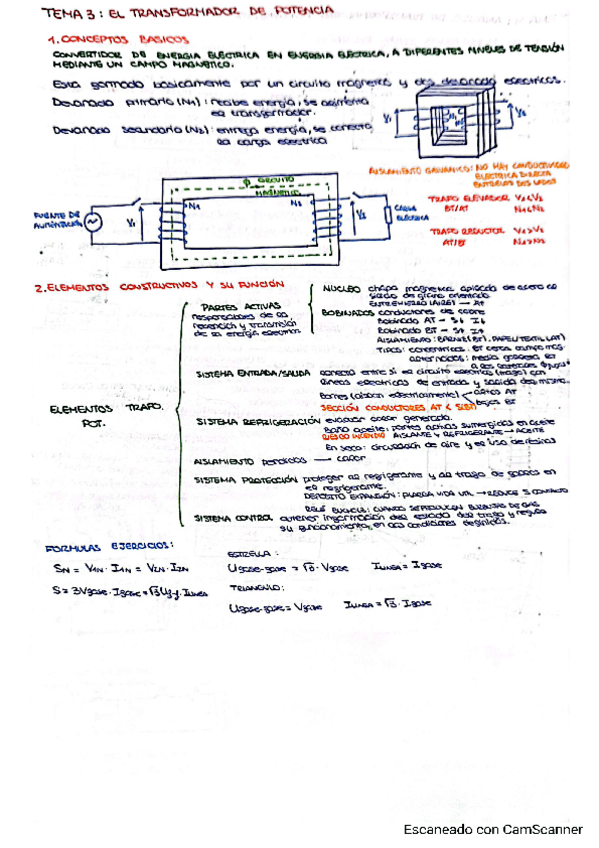 TEMA 3: EL TRANSFORMADOR DE POTENCIA
1. CONCEPTOS BASICOS
CONVERTIDOR DE ENERGIA ELECTRICA EN ENERGIA ELECTRICA, A DIFERENTES NIVELES DE TENSIÓN
MEDIANTE UN CAMPO MAGNETICO.
Esta formado basicamente por un circuito magnetico y dos devanados electricos.
Devanado primario (N1): recibe energia, se
el transformador.
Devanado secundario (N2): entrega energia, se conecta
la carga electrica
V1
V2
N1
N2
AISLAMIENTO GALVANICO: NO HAY CONDUCTIVIDAD
ELECTRICA DIRECTA
ENTRE LOS DOS LADOS
CIRCUITO
MAGNETICO
FUENTE DE
V1
N1
N2
V2
CARGA
ELECTRICA
TRAFO ELEVADOR V1<V2
BT/AT N1<N2
TRAFO REDUCTOR V1>V2
AT/BT N1>N2
2. ELEMENTOS CONSTRUCTIVOS Y SU FUNCIÓN
ELEMENTOS TRAFO.
POT.
PARTES ACTIVAS
responsables de la
recepción y transmisión
de la energia electrica
NUCLEO chapa magnetica apilada de acero al
silicio de grano orientado
ENTREHIERRO (AIRE) → AT
BOBINADOS conductores de cobre
Bobinado AT - S↓ I↓
Bobinado BT - S↑ I↑
AISLAMIENTO: BARNIZ(BT), PAPEL/TEXTIL(AT)
TIPOS: concentricos: BT cerca
alternados: media
SISTEMA ENTRADA/SALIDA conecta entre si el circuito electrico (trafo) con
lineas electricas de entrada y salida del mismo.
Bornes (aislan electricamente) altos AT
bajos BT
SECCIÓN CONDUCTORES AT < S(BT)
SISTEMA REFRIGERACIÓN evacuar calor generado.
Baño aceite: partes activas sumergidas en aceite
RIESGO INCENDIO AISLANTE Y REFRIGERANTE → ACEITE
En seco: circulación de aire y se usa de resinas
AISLAMIENTO perdidas → calor
SISTEMA PROTECCIÓN proteger al refrigerante y al trafo de gases en
el refrigerante.
DEPOSITO EXPANSIÓN: VIDA UTIL → REDUCE S CONTACTO
RELÉ BUCHHOLZ: CUANDO SE PRODUCEN BURBUJAS DE GAS
SISTEMA CONTROL obtener información del estado del trafo y regula
su funcionamiento, en las condiciones definidas.
FORMULAS EJERCICIOS:
SN = V1N · I1N = V2N · I2N
S = 3Vfase · Ifase = √3 Uf-f · ILINEA
ESTRELLA:
Ufase-fase = √3 · Vfase ILINEA = Ifase
TRIANGULO:
Ufase-fase = Vfase ILINEA = √3 · Ifase
Escaneado con CamScanner